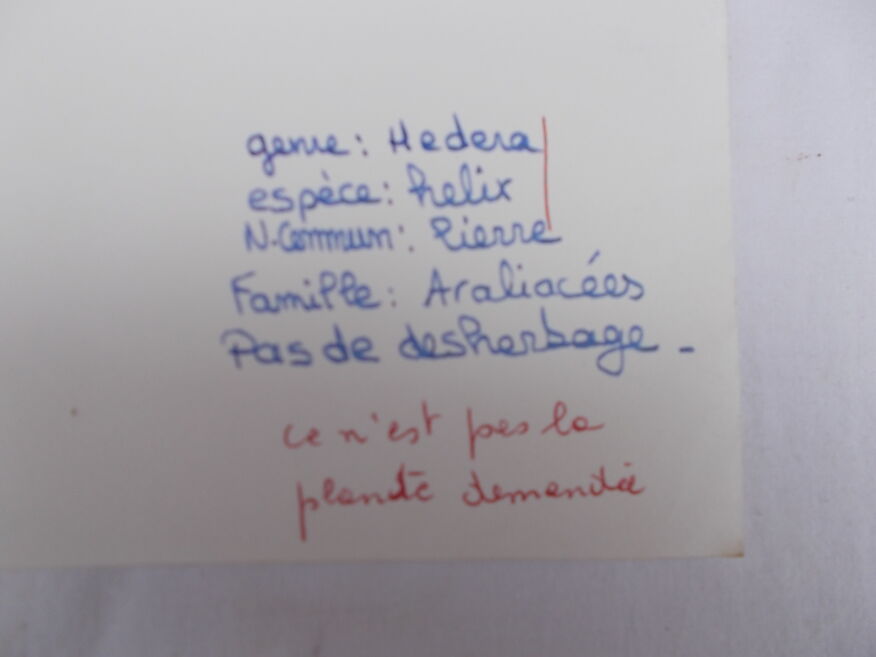 genre: Hedera
espèce: helix
N.Commun: Lierre
Famille: Araliacées
Pas de desherbage -
ce n'est pas la
plante demandée